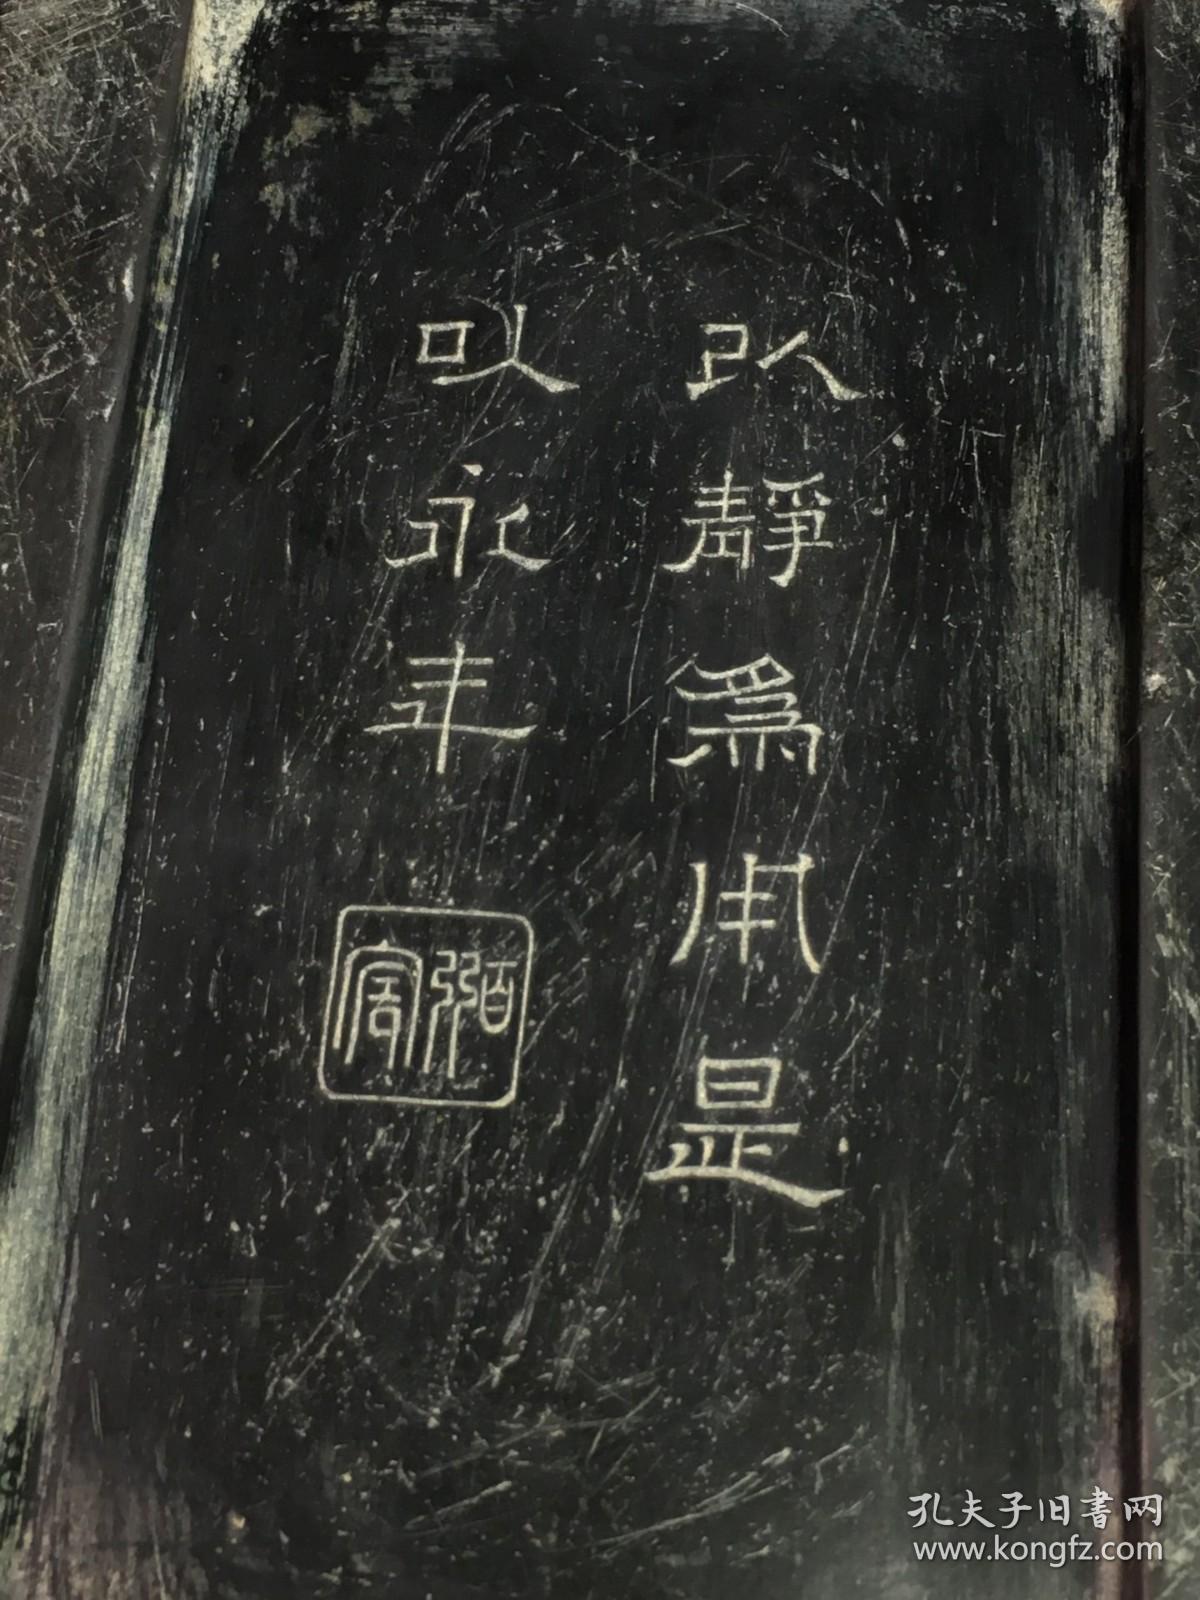 以静爲用是
以永年
孔夫子旧書网
www.kongfz.com